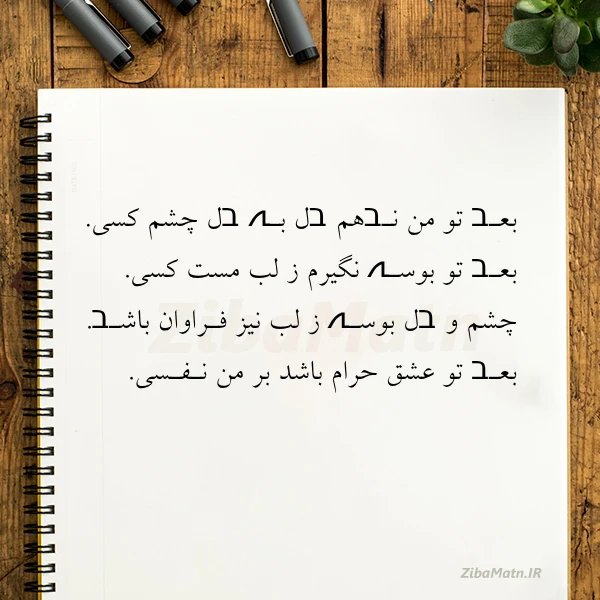 بعـد تو من نـدهم دل بـه دل چشم کسی.
بعـد تو بوسـه نگیرم ز لب مست کسی.
چشم و دل بوسـه ز لب نیز فـراوان باشـد.
بعـد تو عشق حرام باشد بر من نـفـسی.
ZibaMatn
ZibaMatn.IR